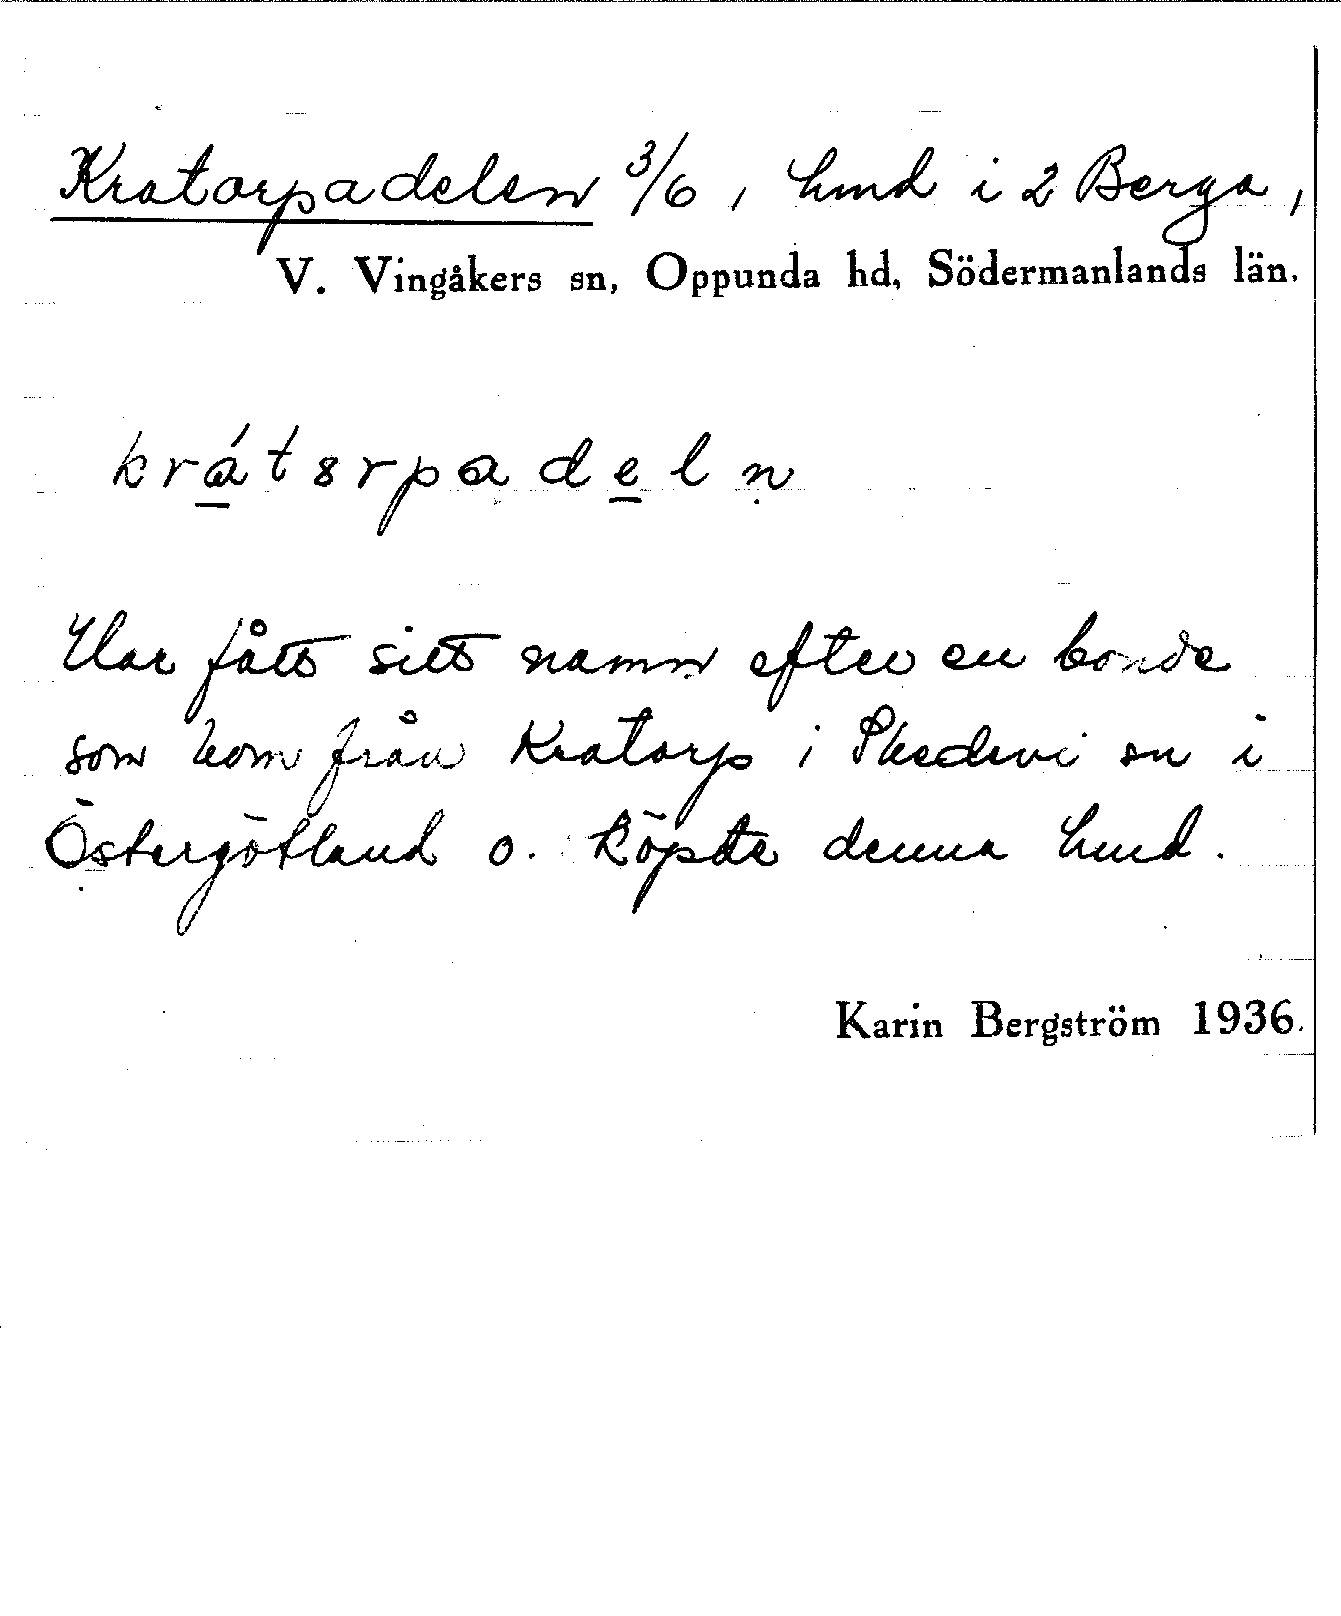 Kratorpadelen 3/6, hmd i 2 Berga,
V. Vingåkers sn, Oppunda hd, Södermanlands län.
krátɜrpadeln̥
Har fått sitt namn efter en bonde
som kom från Kratorp i Skedevi sn i
Östergötland o. köpte denna hmd.
Karin Bergström 1936.